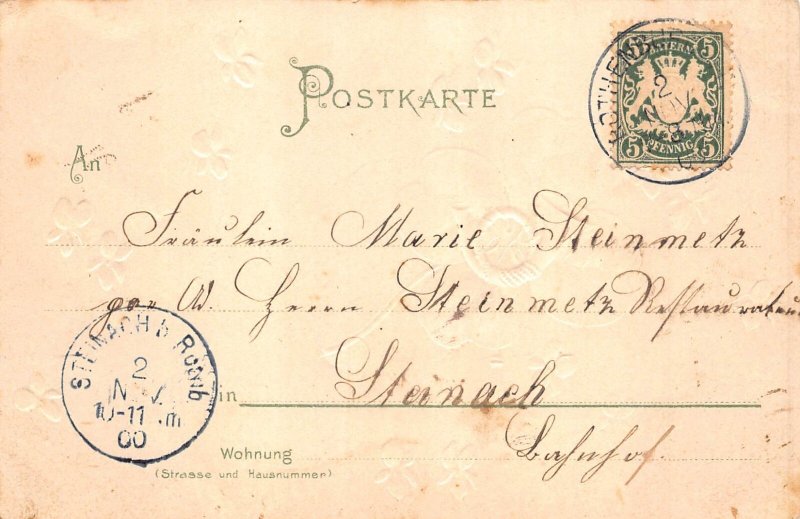 POSTKARTE
BAYERN
5 5
5 PFENNIG 5
2 NOV
8
An
Fräulein Marie Steinmetz
Ad. Herrn Steinmetz Restaurateur
STEINACH b. Rothb.
2
NOV.
10-11
00
in Steinach
Bahnhof.
Wohnung
(Strasse und Hausnummer)